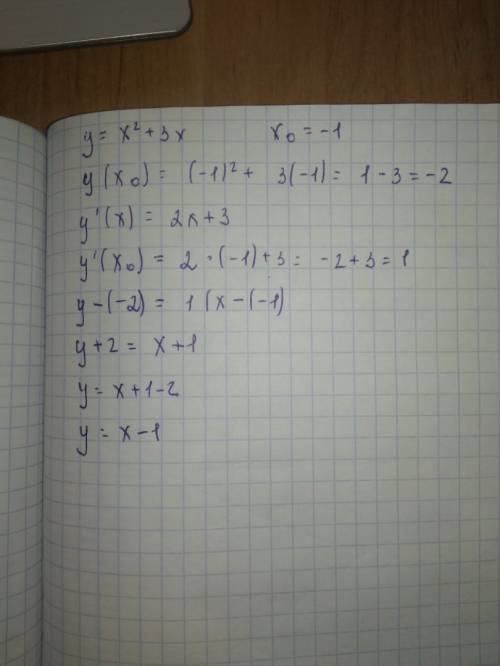 y = x² + 3x x₀ = -1
y(x₀) = (-1)² + 3(-1) = 1 - 3 = -2
y'(x) = 2x + 3
y'(x₀) = 2 · (-1) + 3 = -2 + 3 = 1
y - (-2) = 1 (x - (-1)
y + 2 = x + 1
y = x + 1 - 2
y = x - 1